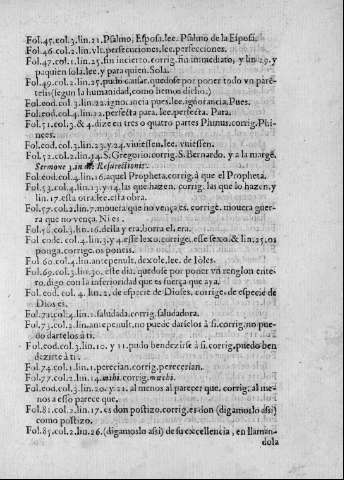 Fol.45.col.3.lin.21.Psalmo, Esposa.lee. Psalmo de la Esposa.
Fol.46.col.2.lin.vlt.persecuciones, lee.perfecciones.
Fol.47.col.1.lin.25.fin incierto.corrig.fin inmediato, y lin 29.y
paquien sola.lee.y para quien.Sola.
Fol.49.col.1.lin.25.pudo causar.quedose por poner todo vn parē-
tesis(segun la humanidad,como hemos dicho.)
Fol.eod.col.3.lin.22.ignorancia pues.lee.ignorancia.Pues.
Fol.eod.col.4.lin.22.perfecta para.lee.perfecta. Para.
Fol.51.col.3.& 4.dize en tres o quatro partes Phinus.corrig.Phi-
nees.
Fol.eod.col.3.lin.23.y 24.viuiessen.lee.vniessen.
Fol.52.col.2.lin.14.S.Gregorio.corrig.S.Bernardo. y a la margē.
Sermone 3.in Resurrectionis.
Fol.eod.col.4.lin.16.aquel Propheta.corrig.à que el Propheta.
Fol.53.col.4.lin.13.y 14.las que hazen. corrig. las que lo hazen, y
lin.17.esta otra.lee.esta obra.
Fol.57.col.2.lin.7.moueta que no vença es. corrige. moueta guer-
ra que no vença. Ni es.
Fol.58.col.3.lin.16.della y era.borra el, era.
Fol eod. col.4.lin.3.y 4.esse sexo.corrige, esse sexo.& lin.25.os
ponga.corrige.os poneis.
Fol 60.col.4.lin.antepenult.dexole.lee. de Ioles.
Fol.69.col.3.lin.30. este dia. quedose por poner vn renglon ente-
ro,digo con la inferioridad que es fuerça que aya.
Fol.eod. col. 4. lin.2. de especie de Dioses. corrige. de especie de
Dios es.
Fol.71.col.4.lin.1.saludada.corrig.saludadora.
Fol.73.col.2.lin.antepenult.no puede darselos à si.corrig.no pue-
do dartelos à ti.
Fol.eod.col.3.lin.10. y 11.pudo bendezirse à si.corrig.puedo ben
dezirte à ti.
Fol.74.col.1.lin.1.perecian.corrig.perecerian.
Fol.77.col.2.lin.14.mihi.corrig.michi.
Fol.eod.col.3.lin.20.y 21. al menos al parecer que. corrig. al me-
nos a esso parece que.
Fol.81.col.2.lin.17.es don postizo.corrig.es don (digamoslo assi)
como postizo.
Fol.85.col.2.lin.26.(digamoslo assi) de su excellencia, en llaman-
dola